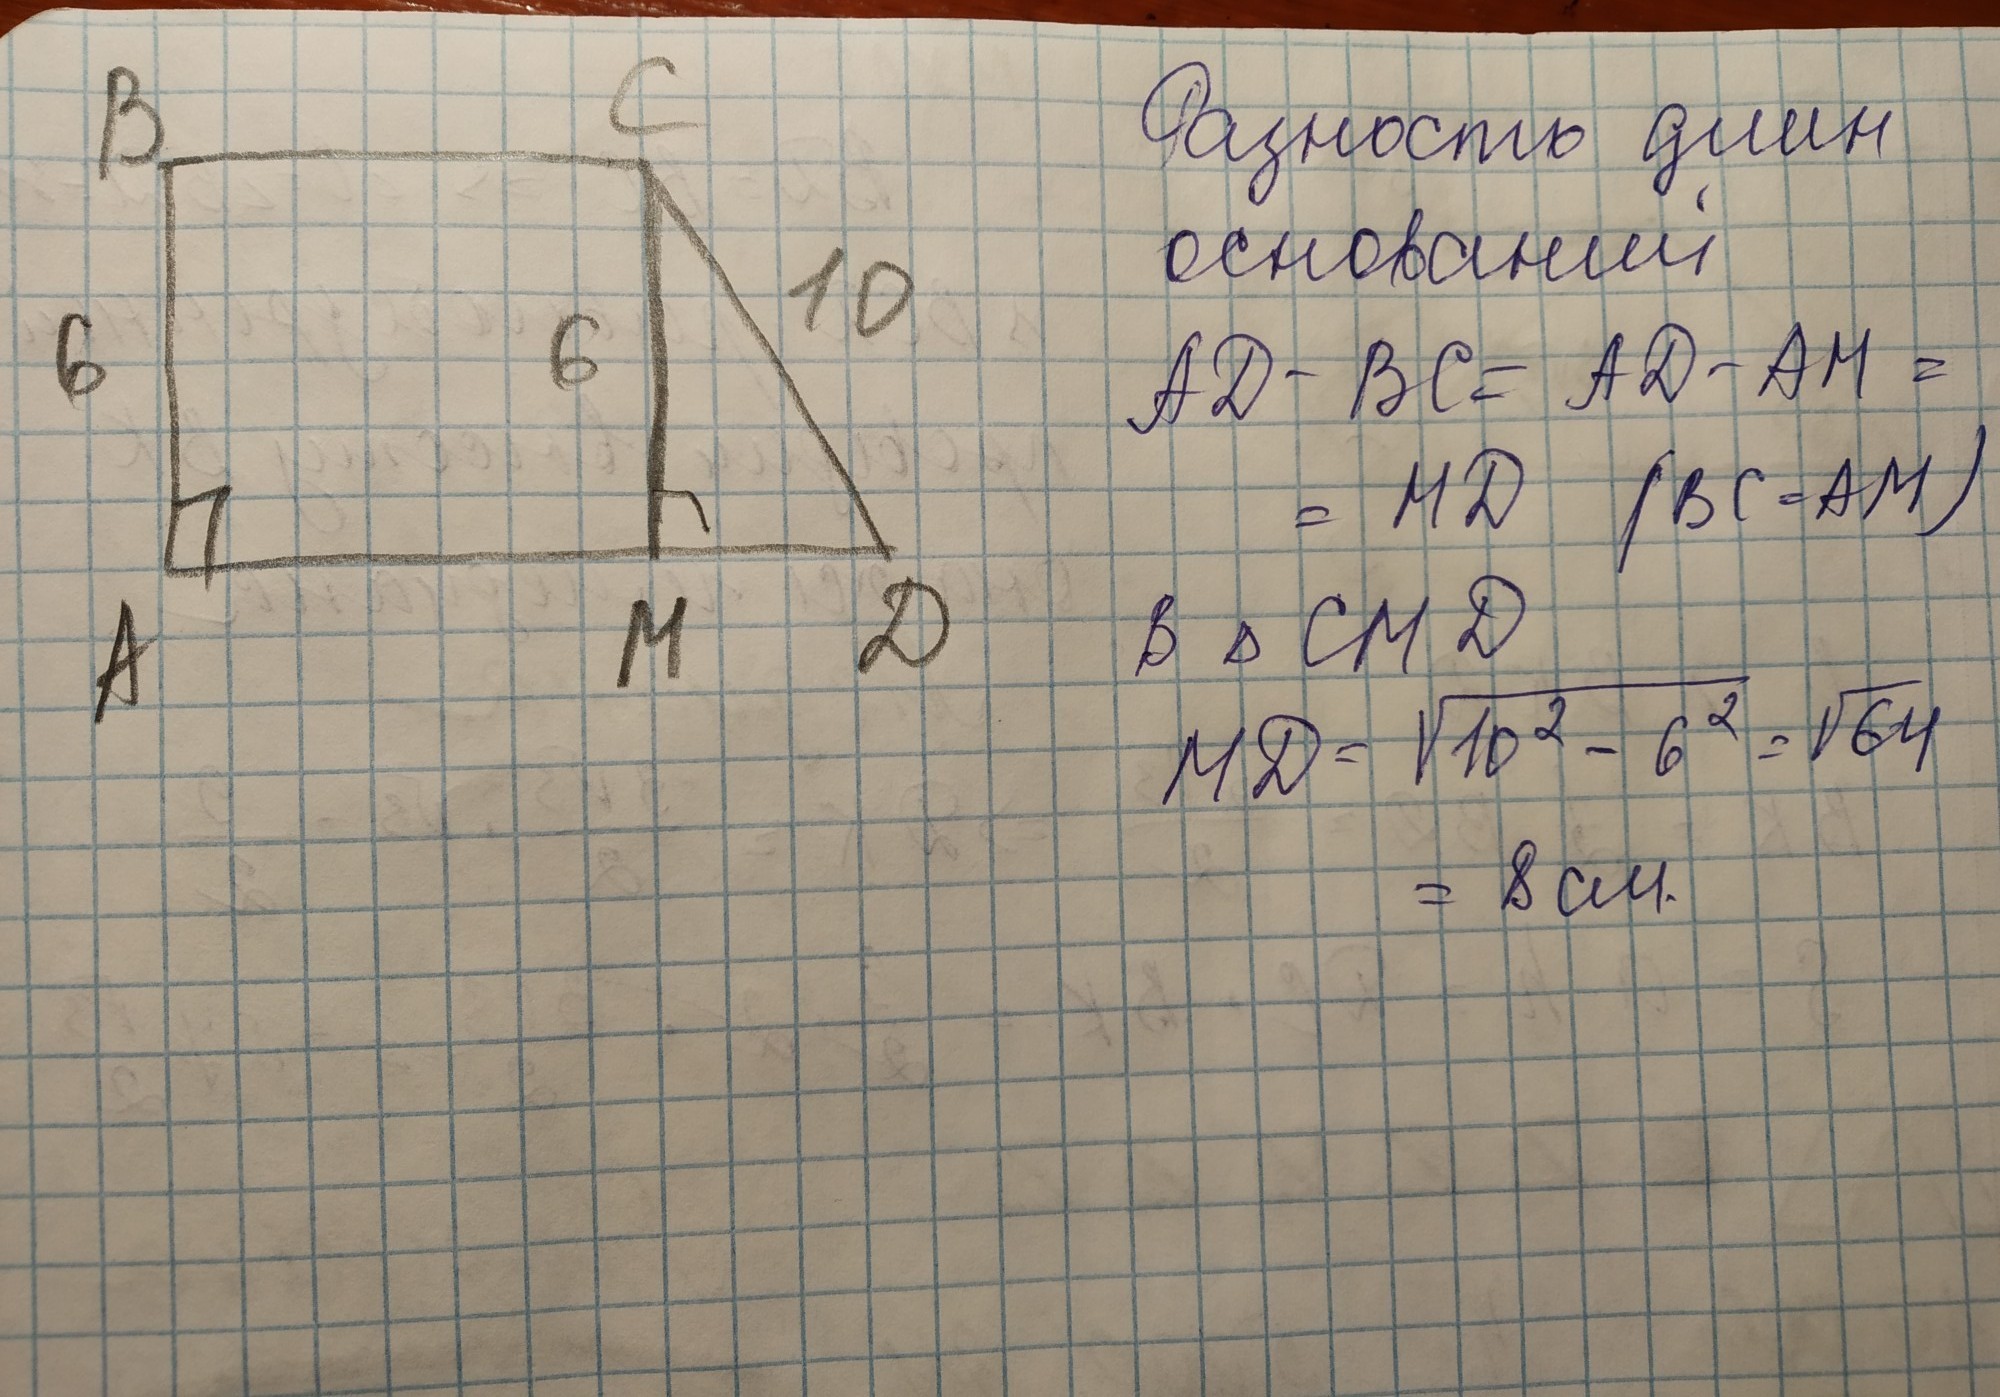 B C
6 6 10
A M D
Разность длин
оснований
AD - BC = AD - AM =
= MD (BC = AM)
В △ CMD
MD = √10² - 6² = √64
= 8 см.